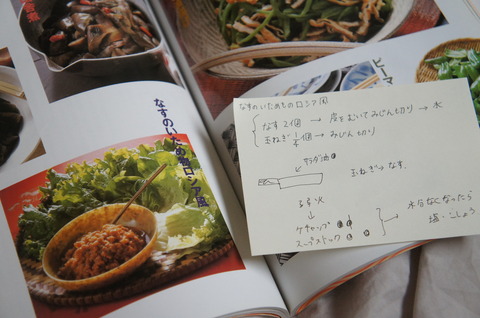 なすのいため物ロシア風
ピーマ
なすのいためもの ロシア風
なす2個 → 皮をむいてみじん切り → 水
玉ねぎ1/4個 → みじん切り
サラダ油
玉ねぎ→なす
ケチャップ
スープストック
→ 水分なくなったら
塩・こしょう